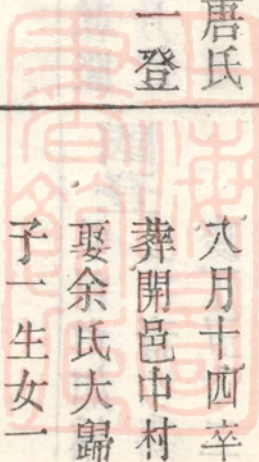 唐氏
一登
八月十四卒
葬開邑中村
娶余氏大歸
子一生女一